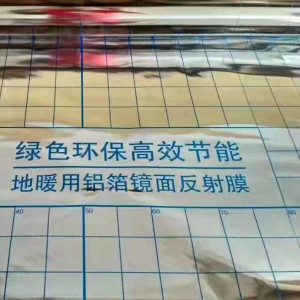 绿色环保高效节能
地暖用铝箔镜面反射膜
40 50 60 70 80